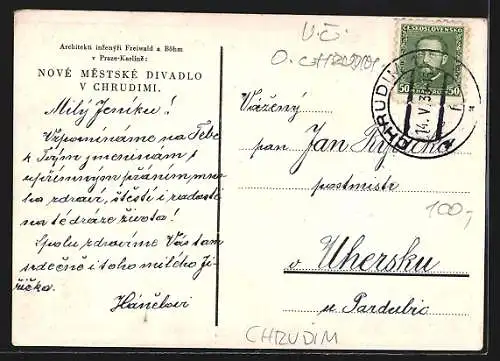 Architekti inženýři Freiwald a Böhm
v Praze-Karlíně:
NOVÉ MĚSTSKÉ DIVADLO
V CHRUDIMI.
Milý Jeníku!
Vzpomínáme na Tebe
k Tvým jmeninám s
upřímným přáním mno-
ha zdraví, štěstí i radosti
na té dráze života!
Spolu zdravíme Vás tam
srdečně i toho milého Ji-
říčka.
Hánělovi
V.Č.
O. CHRUDIM
ČESKOSLOVENSKO
50 50
CHRUDIM
14.V.3
Vážený
pan Jan
postmistr
100,-
v Uhersku
u Pardubic
CHRUDIM